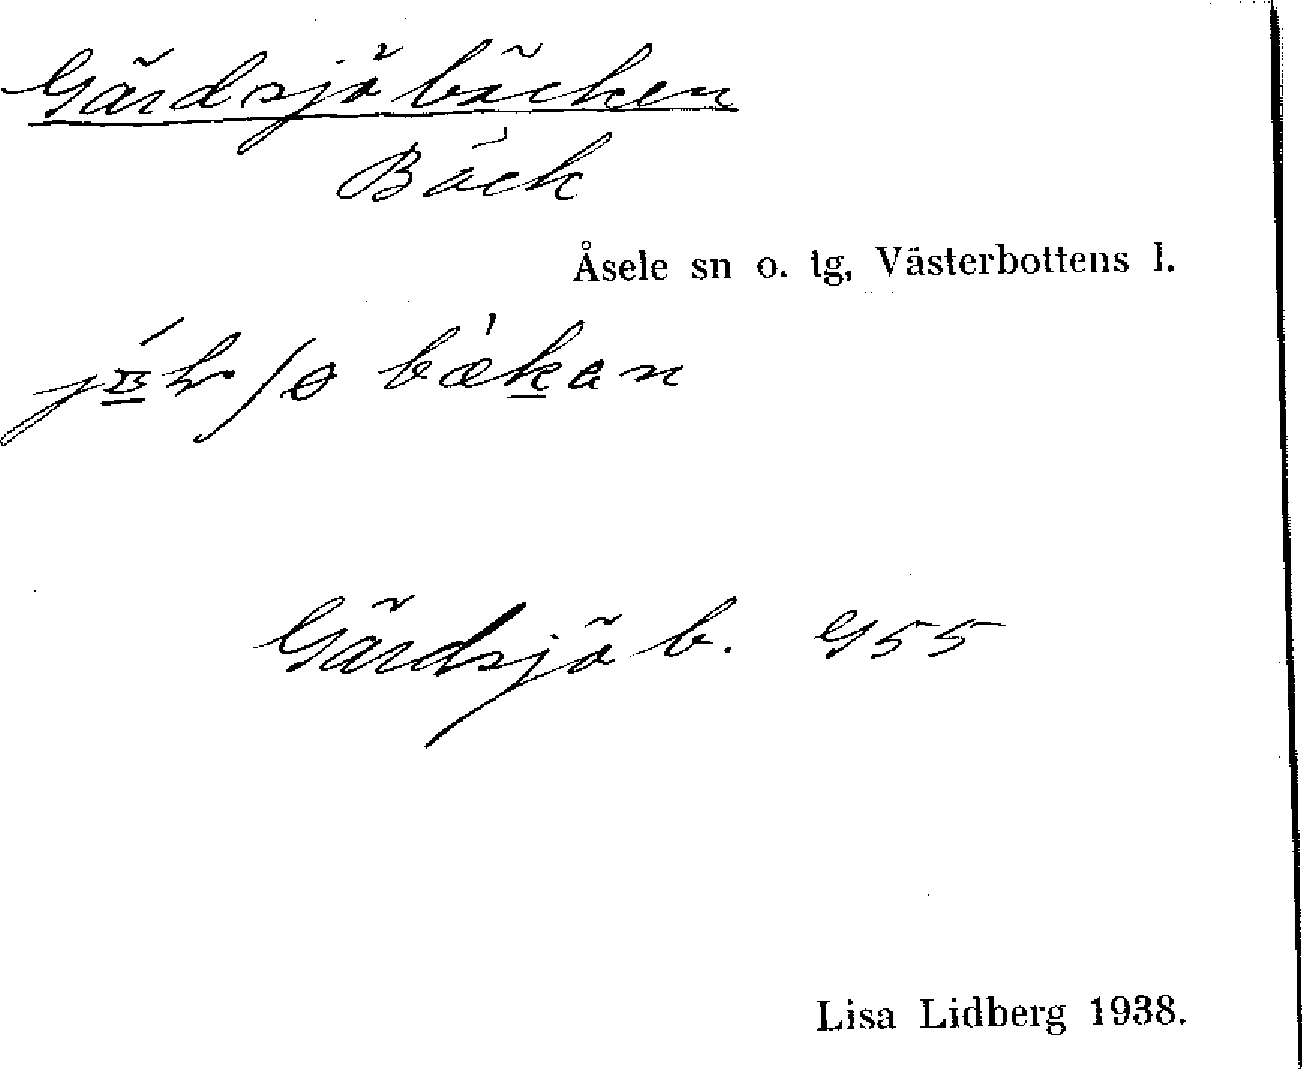 Gärdsjöbäcken
Bäck
Åsele sn o. lg, Västerbottens l.
bækan
Gärdsjö b. G55
Lisa Lidberg 1938.